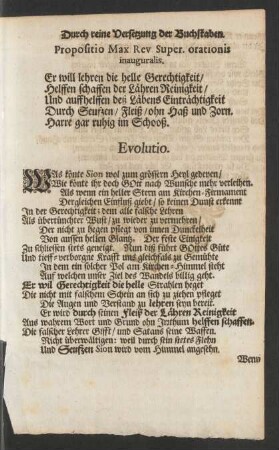 Durch reine Versetzung der Buchstaben.
Propositio Max Rev Super. orationis
inauguralis.
Er will lehren die helle Gerechtigkeit/
Helffen schaffen der Lähren Reinigkeit/
Und auffhelffen deß Läbens Einträchtigkeit
Durch Seufzen/ Fleiß/ ohn Haß und Zorn.
Harrt gar ruhig im Schooß.
Evolutio.
Was könte Sion wol zum grössern Heyl gedeyen/
Wie könte ihr doch GOtt nach Wunsche mehr verleihen.
Als wenn ein heller Stern am Kirchen-Firmament
Dergleichen Einfluß giebt/ so keinen Dunst erkennt
In der Gerechtigkeit: dem alle falsche Lehren
Als übertünchter Wust/ zu wieder zu vermehren/
Der nicht zu hegen pflegt von innen Dunckelheit
Von aussen hellen Glantz. Der feste Einigkeit
Zu schliessen stets geneigt. Nun diß führt GOttes Güte
Und tieff-verborgne Krafft uns gleichfals zu Gemühte
In dem ein solcher Pol am Kirchen-Himmel steht
Auf welchen unsre Ziel des Wandels billig geht.
Er wil Gerechtigkeit die helle Strahlen heget
Die nicht mit falschem Schein an sich zu ziehen pfleget
Die Augen und Verstand zu lehren seyn bereit.
Er wird durch seinen Fleiß der Lähren Reinigkeit
Aus wahrem Wort und Grund ohn Irrthum helffen schaffen.
Die falscher Lehrer Gifft/ und Satans seine Waffen.
Nicht überwältigen: weil durch sein stetes Flehn
Und Seufzen Sion wird vom Himmel angesehn.
Wenn